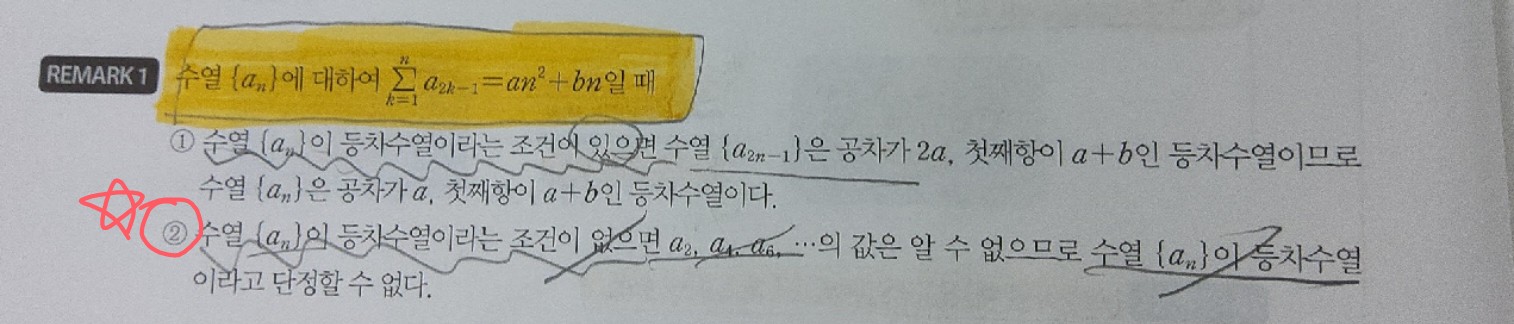 REMARK 1 수열 {aₙ}에 대하여 ∑ₖ₌₁ⁿ a₂ₖ₋₁=an²+bn일 때
① 수열 {aₙ}이 등차수열이라는 조건이 있으면 수열 {a₂ₙ₋₁}은 공차가 2a, 첫째항이 a+b인 등차수열이므로
수열 {aₙ}은 공차가 a, 첫째항이 a+b인 등차수열이다.
② 수열 {aₙ}이 등차수열이라는 조건이 없으면 a₂, a₄, a₆, …의 값은 알 수 없으므로 수열 {aₙ}이 등차수열
이라고 단정할 수 없다.